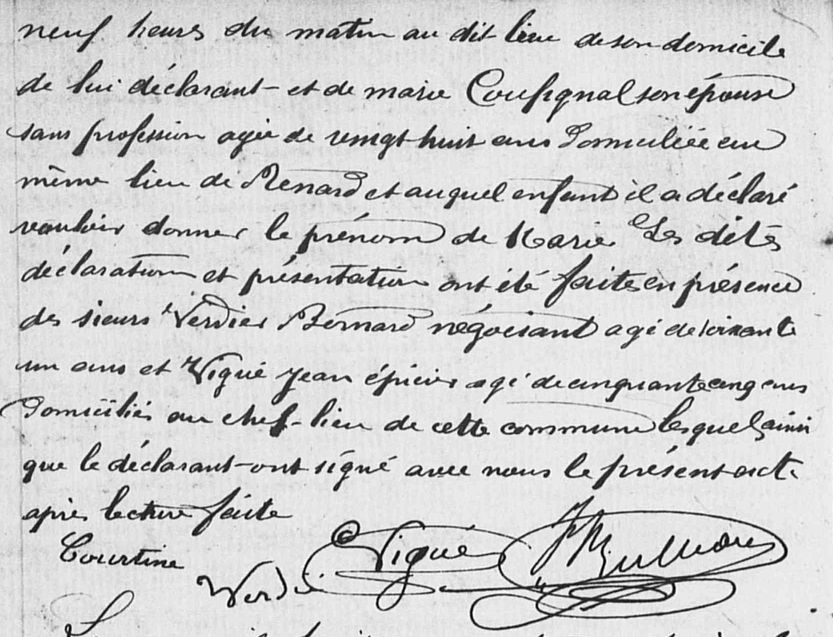 neuf heures du matin au dit lieu de son domicile
de lui déclarant et de marie Coussignal son épouse
sans profession agée de vingt huit ans Domiciliée au
même lieu de Renard et auquel enfant il a déclaré
vouloir donner le prénom de Marie Les dites
déclaration et présentation ont été faites en présence
des sieurs Verdier Bernard négociant agé de soixante
un ans et Vigué Jean épicier agé de cinquante cinq ans
Domiciliés au chef-lieu de cette commune lesquels ainsi
que le déclarant ont signé avec nous le présent acte
après lecture faite
Courtine Verdié Vigué